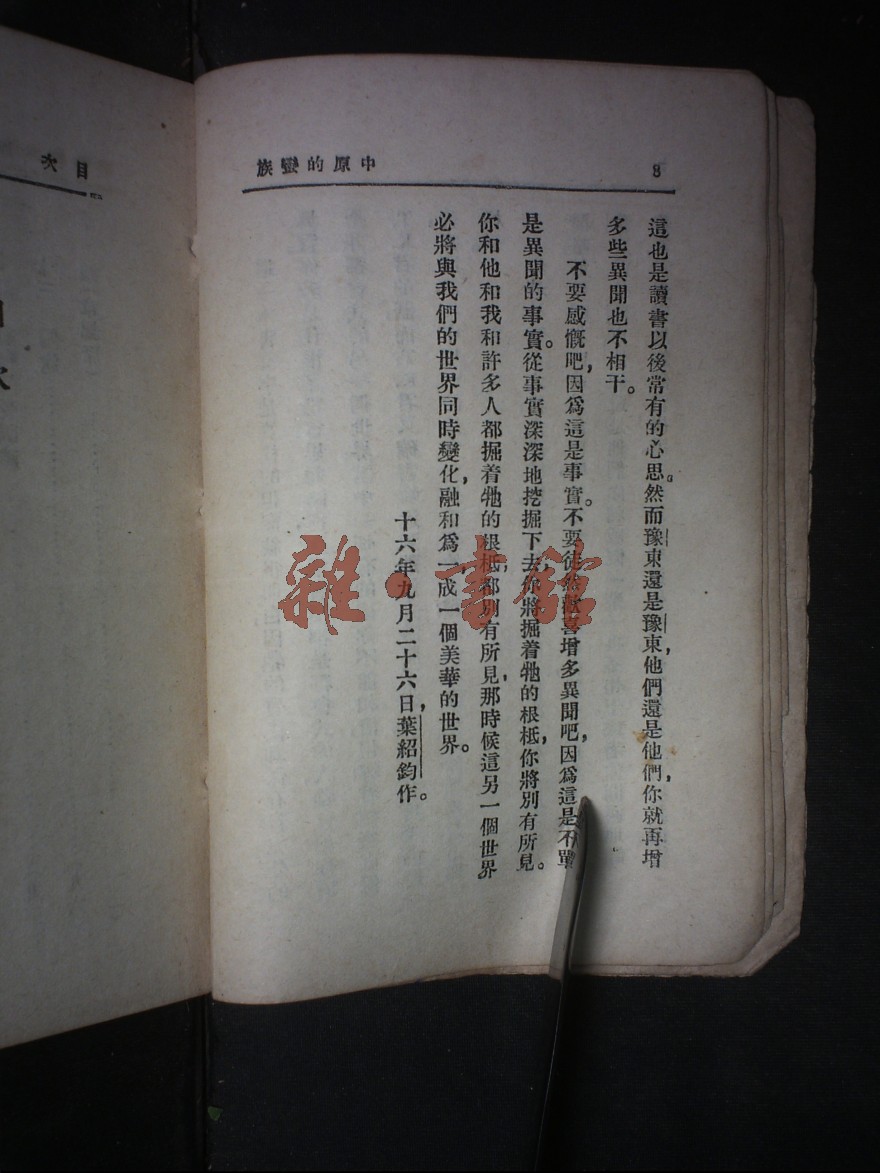 中原的蠻族
8
這也是讀書以後常有的心思。然而豫東還是豫東，他們還是他們，你就再增
多些異聞也不相干。
不要感慨吧，因爲這是事實。不要徒然歡喜增多異聞吧，因爲這是不單
是異聞的事實。從事實深深地挖掘下去，你將掘着牠的根柢，你將別有所見。
你和他和我和許多人都掘着牠的根柢，都別有所見，那時候這另一個世界
必將與我們的世界同時變化，融和爲一，成一個美華的世界。
十六年九月二十六日，葉紹鈞作。
目次
雜·書館